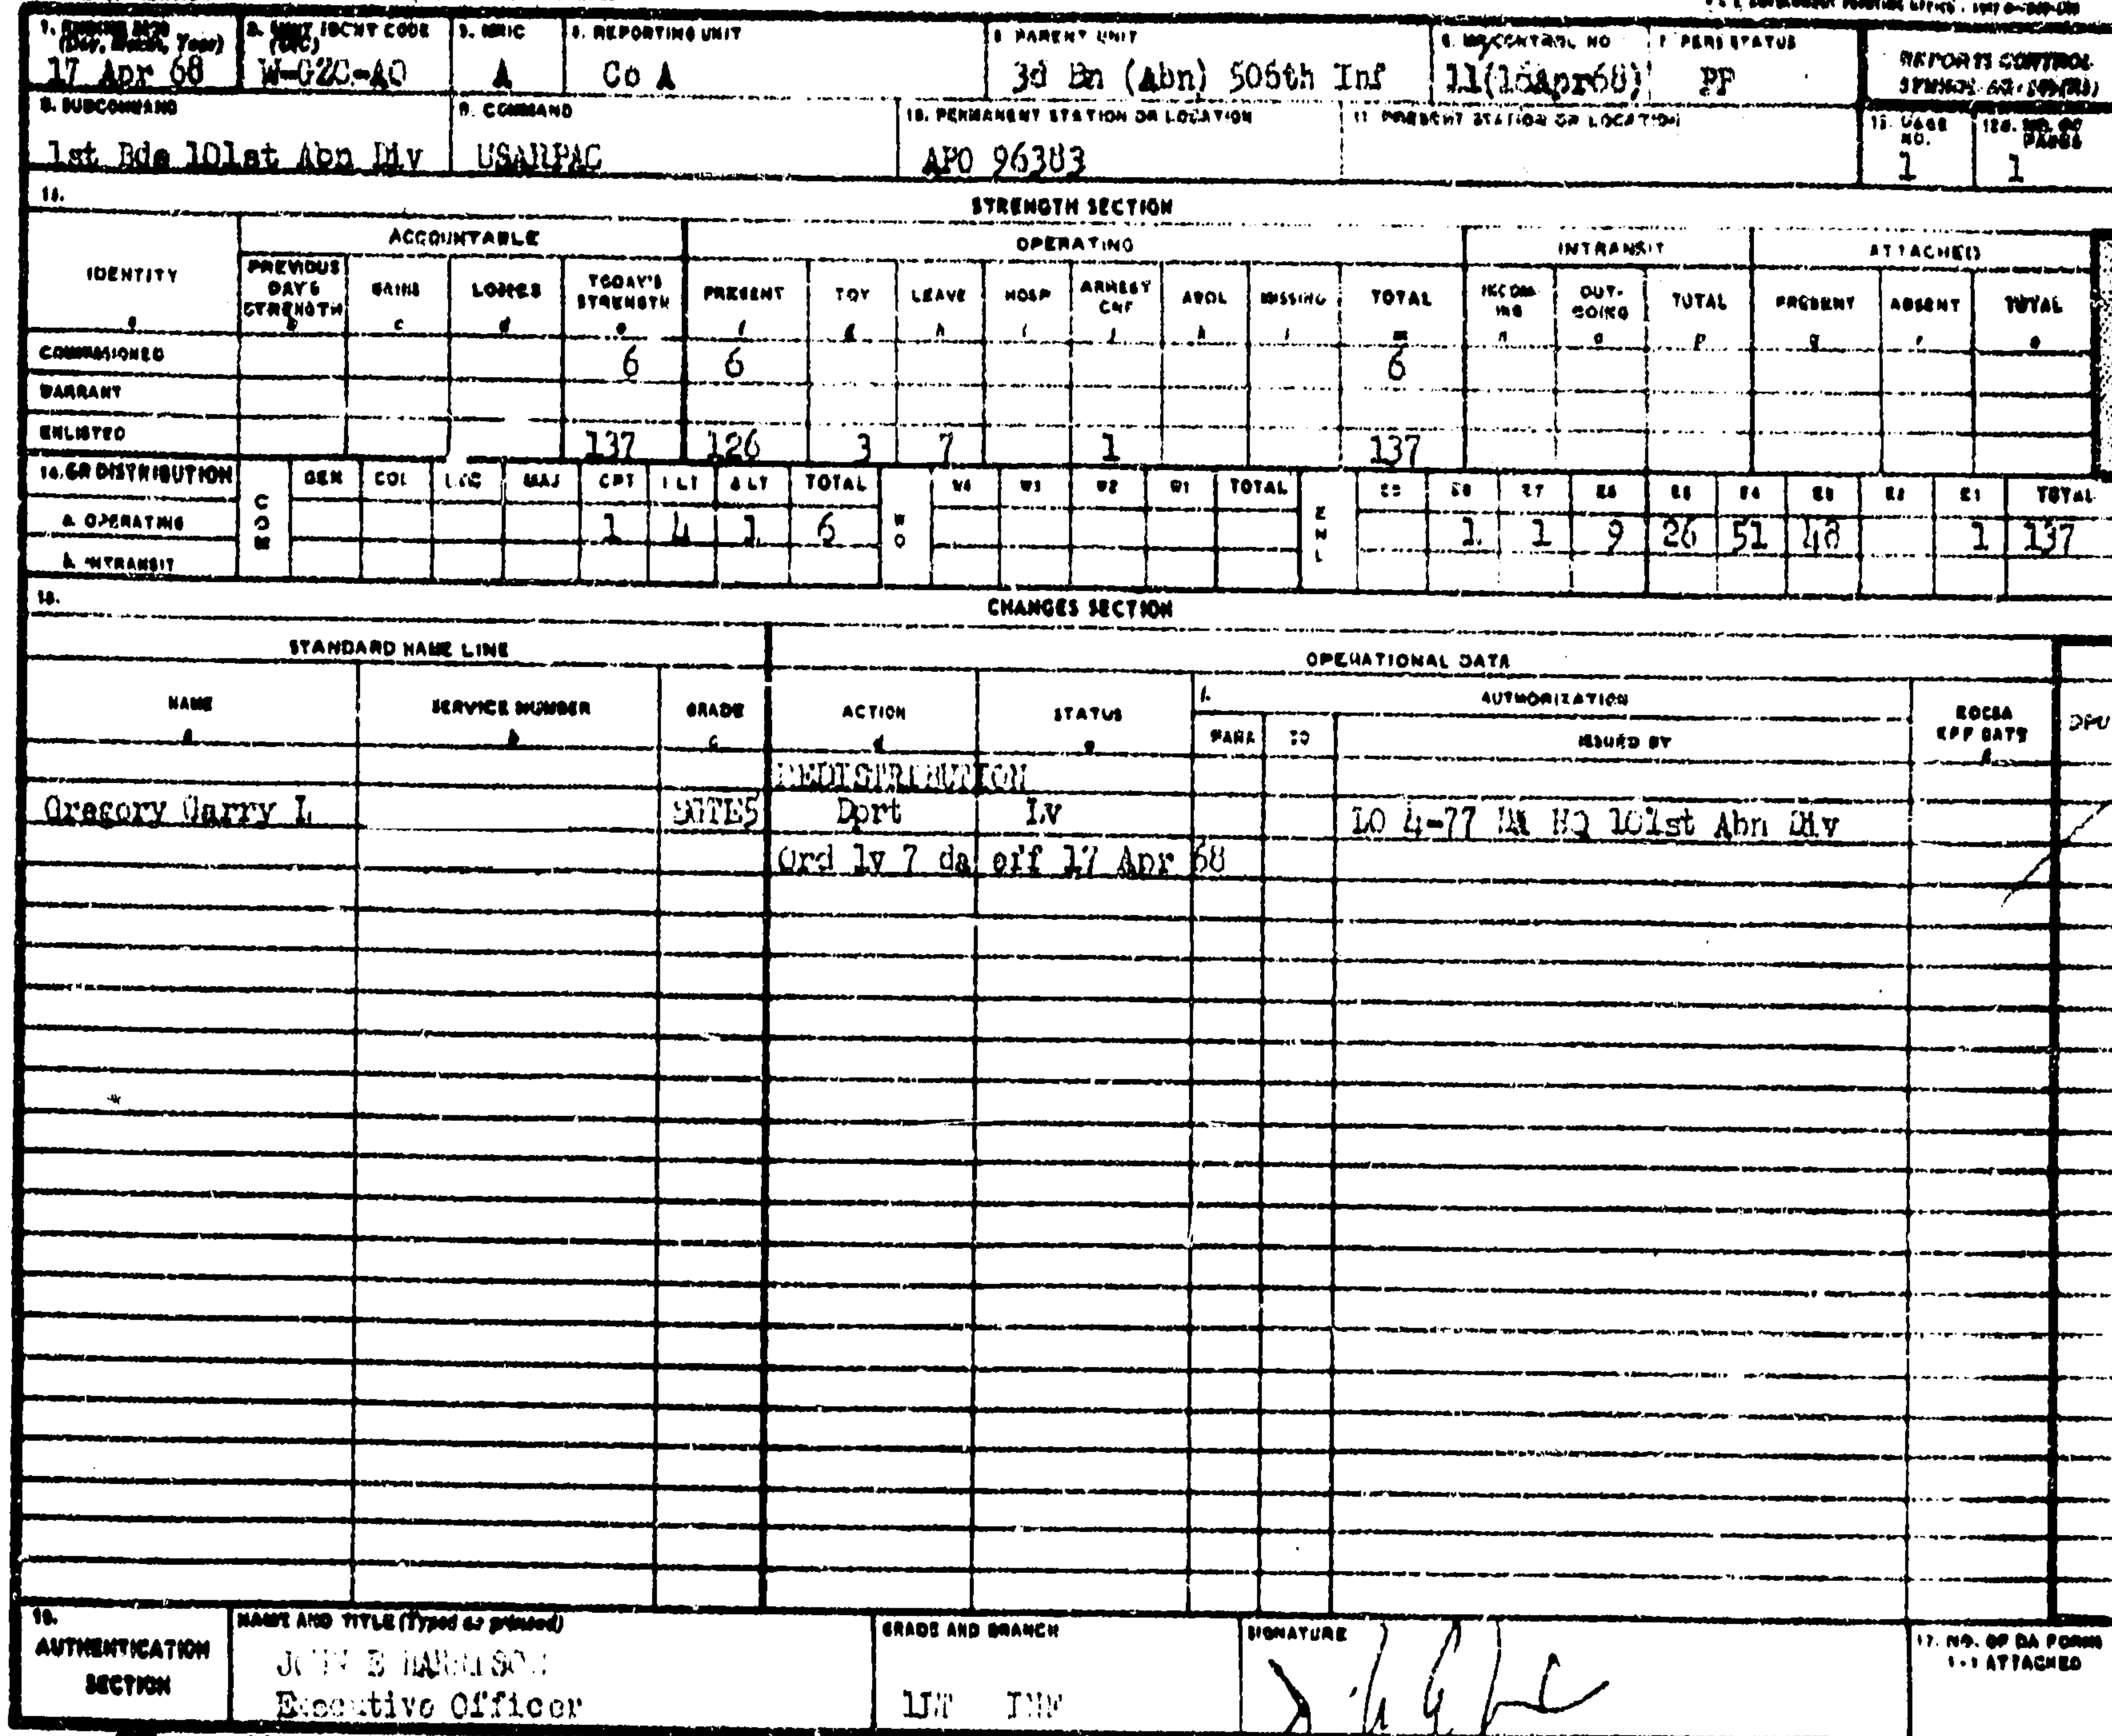 1. (Day, Month, Year) 17 Apr 68
2. UNIT IDENT CODE (UIC)
3. A
4. REPORTING UNIT Co A
5. PARENT UNIT 3d Bn (Abn) 506th Inf
6. CONTROL NO
7. PERS STATUS PF
REPORTS CONTROL
8. SUBCOMMAND 1st Bde 101st Abn Div
9. COMMAND USARPAC
10. PERMANENT STATION OR LOCATION APO 96383
11. PRESENT STATION OR LOCATION
12. PAGE NO. 1
NO. OF PAGES 1
STRENGTH SECTION
ACCOUNTABLE OPERATING INTRANSIT ATTACHED
IDENTITY PREVIOUS DAY'S STRENGTH GAINS LOSSES TODAY'S STRENGTH PRESENT TDY LEAVE HOSP ARREST CNF AWOL MISSING TOTAL INCOMING OUT-GOING TOTAL PRESENT ABSENT TOTAL
COMMISSIONED 6 6 6
WARRANT
ENLISTED 137 126 3 7 1 137
14. GR DISTRIBUTION COM GEN COL LTC MAJ CPT 1 LT 2 LT TOTAL WO W4 W3 W2 W1 TOTAL ENL E8 E7 E6 E5 E4 E3 E2 E1 TOTAL
a. OPERATING 1 4 1 6 1 1 9 26 51 48 1 137
b. INTRANSIT
15.
CHANGES SECTION
STANDARD NAME LINE OPERATIONAL DATA
NAME SERVICE NUMBER GRADE ACTION STATUS AUTHORIZATION
PARA SO ISSUED BY EFF DATE
REDISTRIBUTION
Gregory Garry L SGTE5 Dprt Lv LO 4-77 DA HQ 101st Abn Div
Ord lv 7 da eff 17 Apr 68
16. AUTHENTICATION SECTION
NAME AND TITLE (Typed or printed)
JOHN E HARRISON
Executive Officer
GRADE AND BRANCH
1LT INF
SIGNATURE
17. NO. OF DA FORM 1-1 ATTACHED